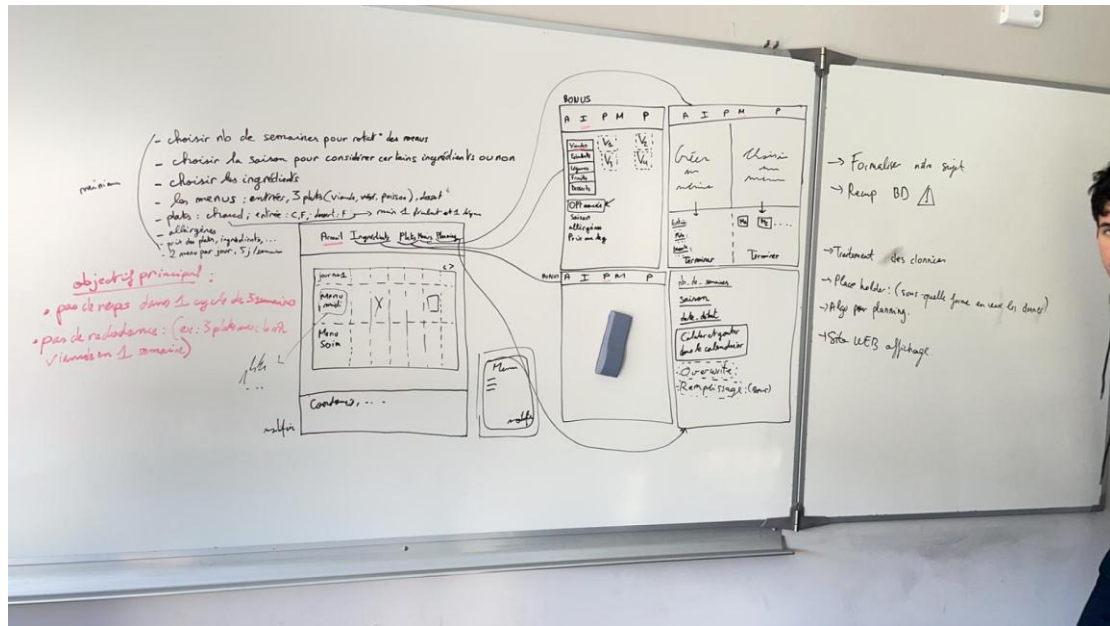 - choisir nb de semaines pour rotat° des menus
- choisir la saison pour considérer certains ingrédients ou non
- choisir les ingrédients
- les menus : entrée, 3 plats (viande, poisson), dessert
- plats : chaud ; entrée : C, F ; dessert : F → 1 et 1
- allergènes
- prix des plats, ingrédients, ...
- 2 menu par jour, 5 j / semaine
minimum
objectif principal :
• pas de repas dans 1 cycle de 3 semaines
• pas de redondance : (ex : 3 plats avec
viande en 1 semaine)
Accueil Ingrédients Plats Menus Planning
jour no 1
< >
Menu
midi
X
Menu
Soir
Coordonnées, ...
Menu
modifier
BONUS
A I P M P
Viandes
Légumes
Fruits
Desserts
V1 V2
V3 V4
OPT avancée
Saison
allergènes
Prix
A I P M P
Créer
un
menu
Choisir
un
menu
Entrée :
Plat :
Dessert :
M1 M2 ....
Terminer
Terminer
BONUS
A I P M P
nb. de semaines
saison
date début
Calculer et ajouter
dans le calendrier
Overwrite :
Remplissage :
→ Formaliser notre sujet
→ Recup BD ⚠
→ Traitement des données
→ Place holder : (sous quelle forme on veut les données)
→ Algo pour planning.
→ Site WEB affichage